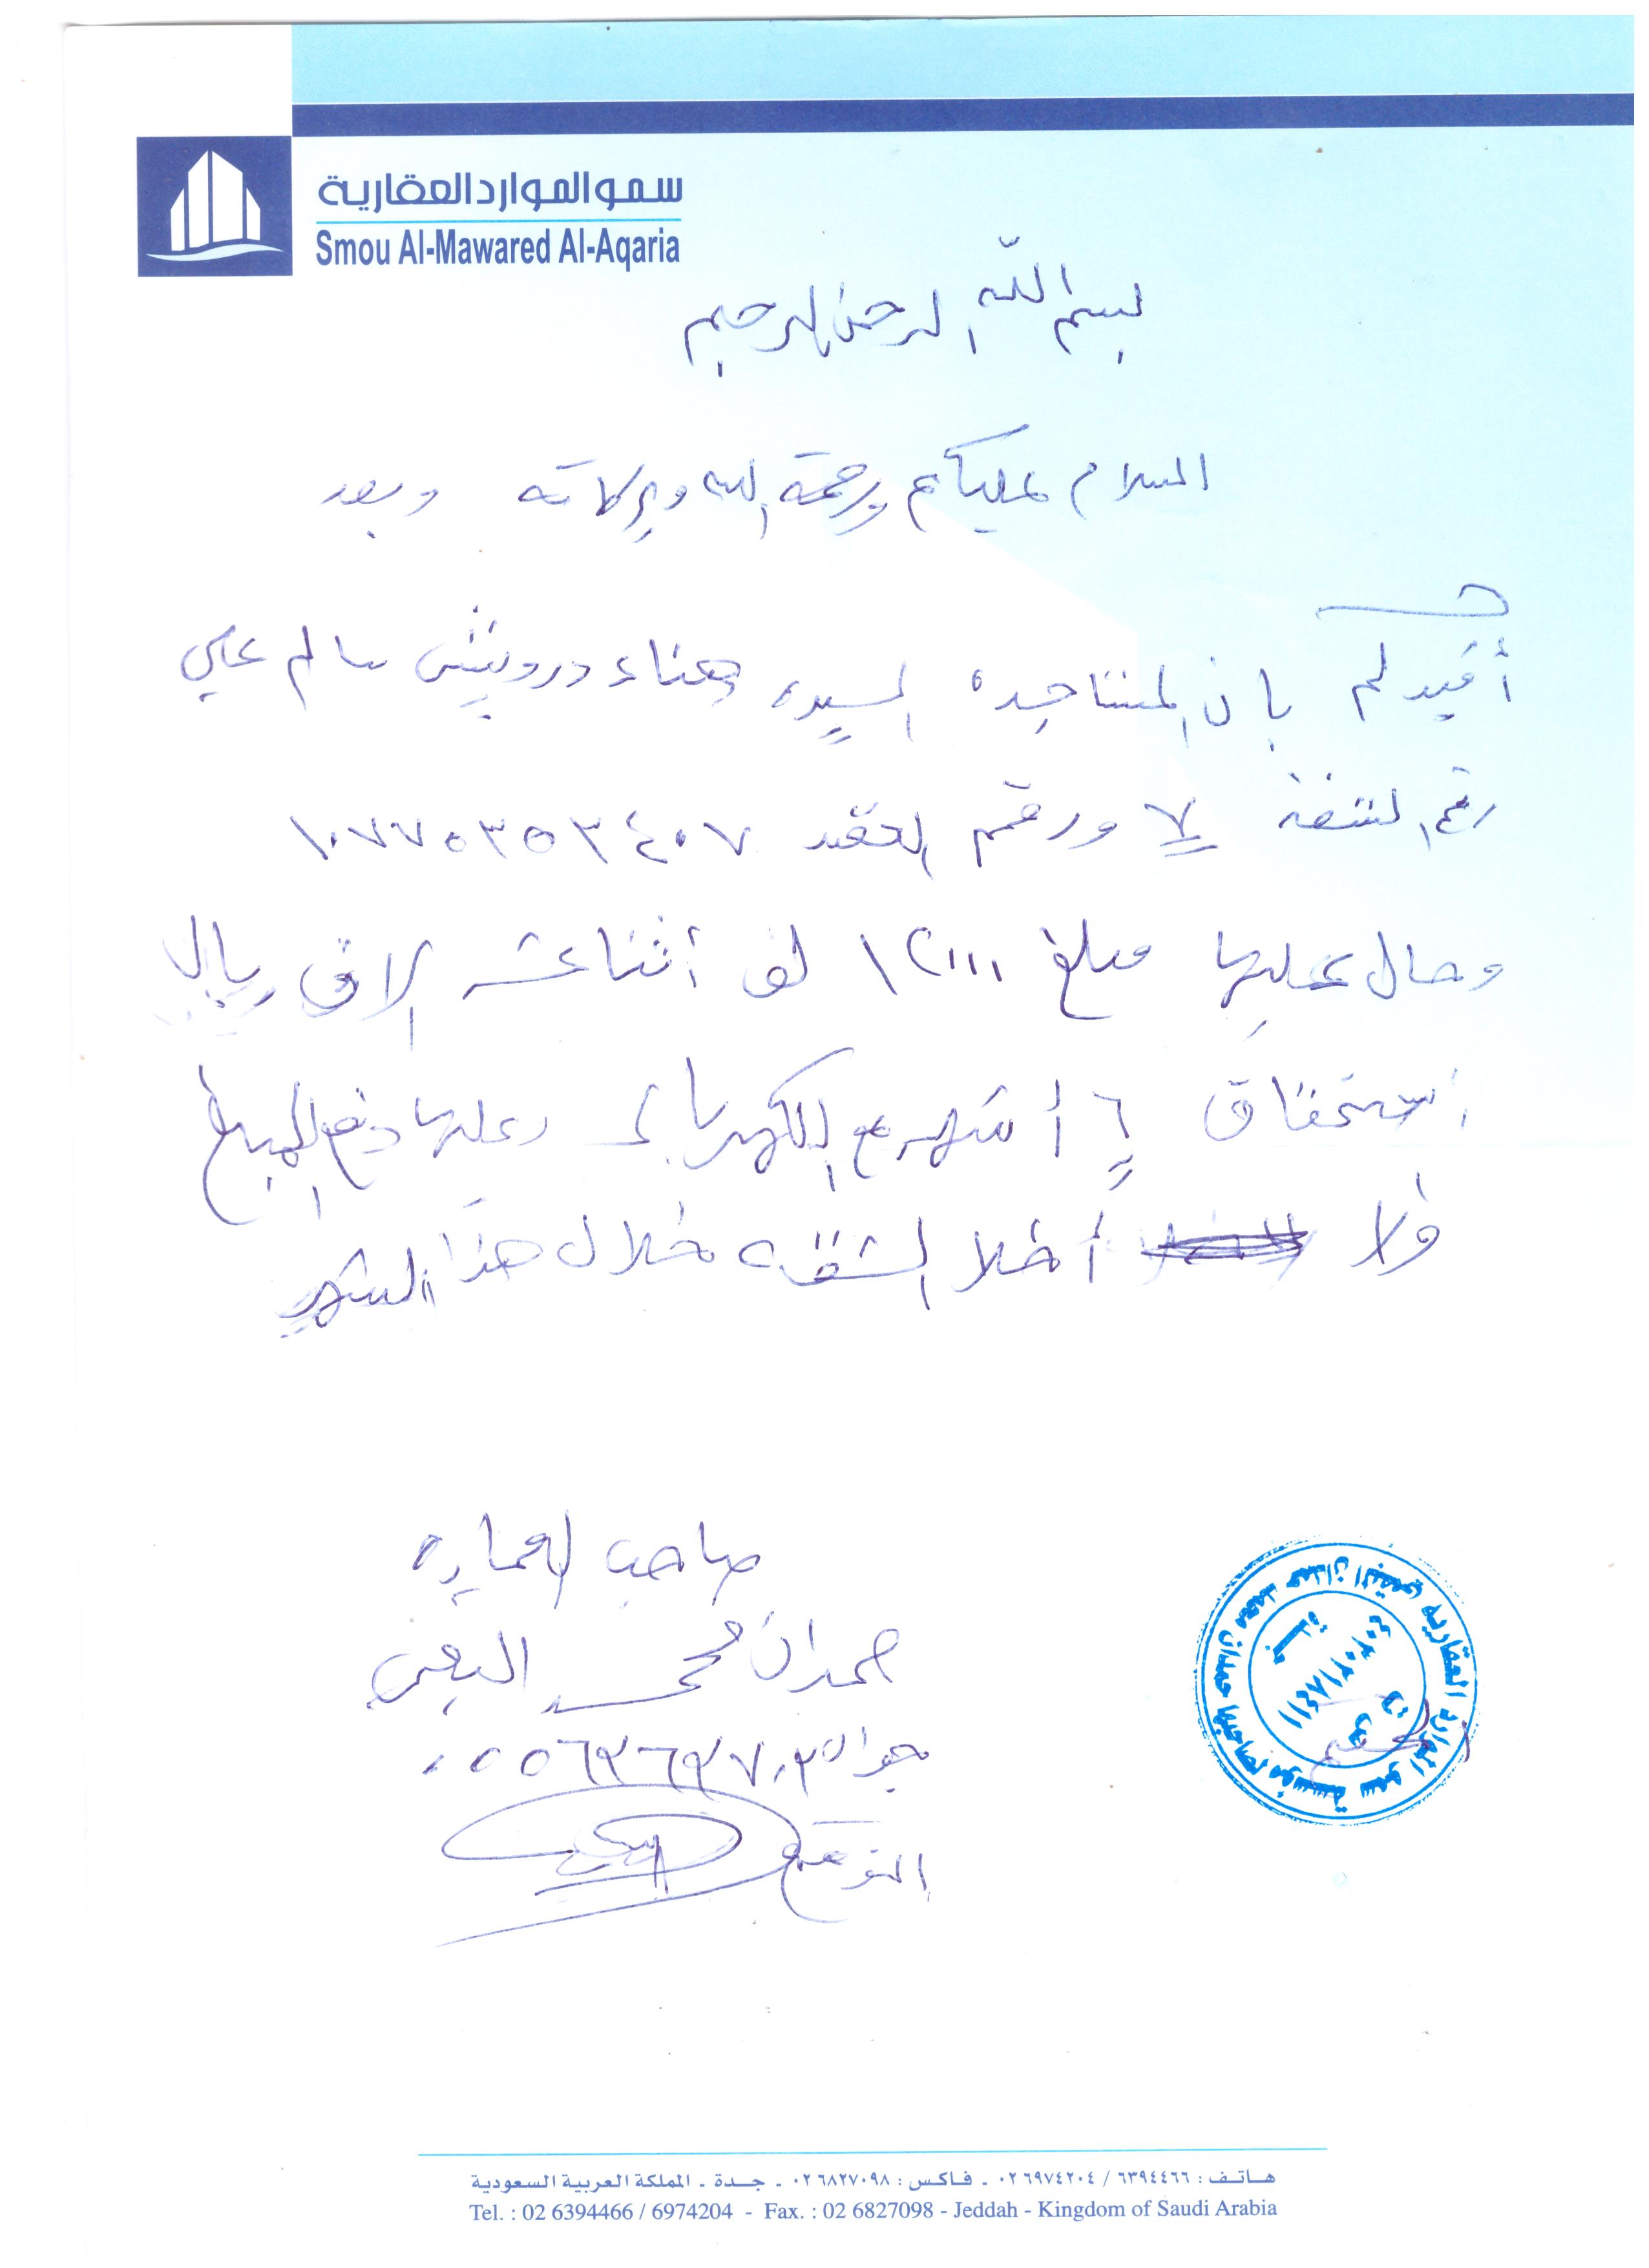 سمو الموارد العقارية
Smou Al-Mawared Al-Aqaria
بسم الله الرحمن الرحيم
السلام عليكم ورحمة الله وبركاته وبعد
أفيدكم بان المستاجره السيده هناء درويش سالم علي
رقم الشقة ٧ ورقم العقد ١٠٧٧٥٣٥٣٤٠٧
وحال عليها مبلغ ١٢٠٠٠ أثنا عشر الاف ريال
استحقاق ٦ أشهر مع الكهرباء وعليها دفع المبلغ
ولا أخلا الشقه خلال هذا الشهر
صاحب العماره
حمدان محمد
جوال ٠٥٥٦٣٦٣٧٠٣
التوقيع
مؤسسة سمو الموارد العقارية لصاحبها حمدان محمد حمدان
جدة
س ت
هاتف : ٦٣٩٤٤٦٦ / ٠٢٦٩٧٤٢٠٤ - فاكس : ٠٢٦٨٢٧٠٩٨ - جدة - المملكة العربية السعودية
Tel. : 02 6394466 / 6974204 - Fax. : 02 6827098 - Jeddah - Kingdom of Saudi Arabia